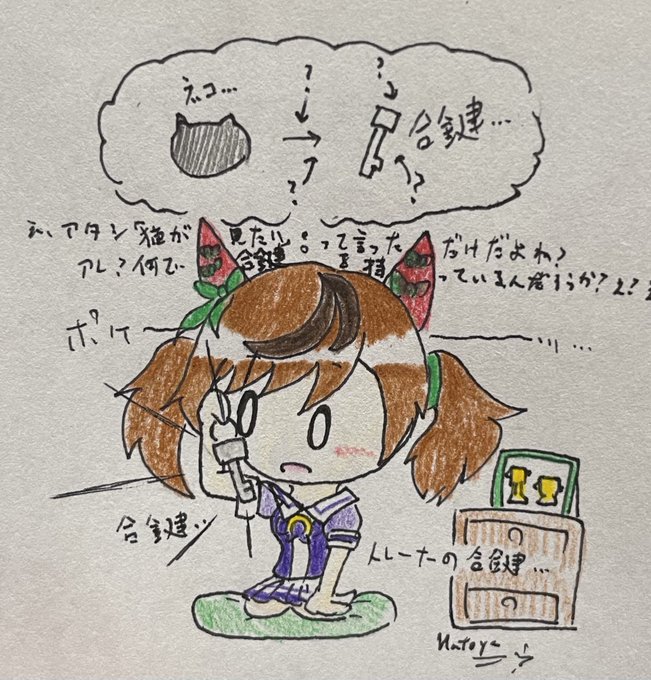 ネコ…
?
?
合鍵…
?
?
え、アタシ「猫が見たい」って言っただけだよね?
アレ?何で合鍵を持っているんだろうか?え?
ポケー
…
合鍵
トレーナーの合鍵…
Hatoya